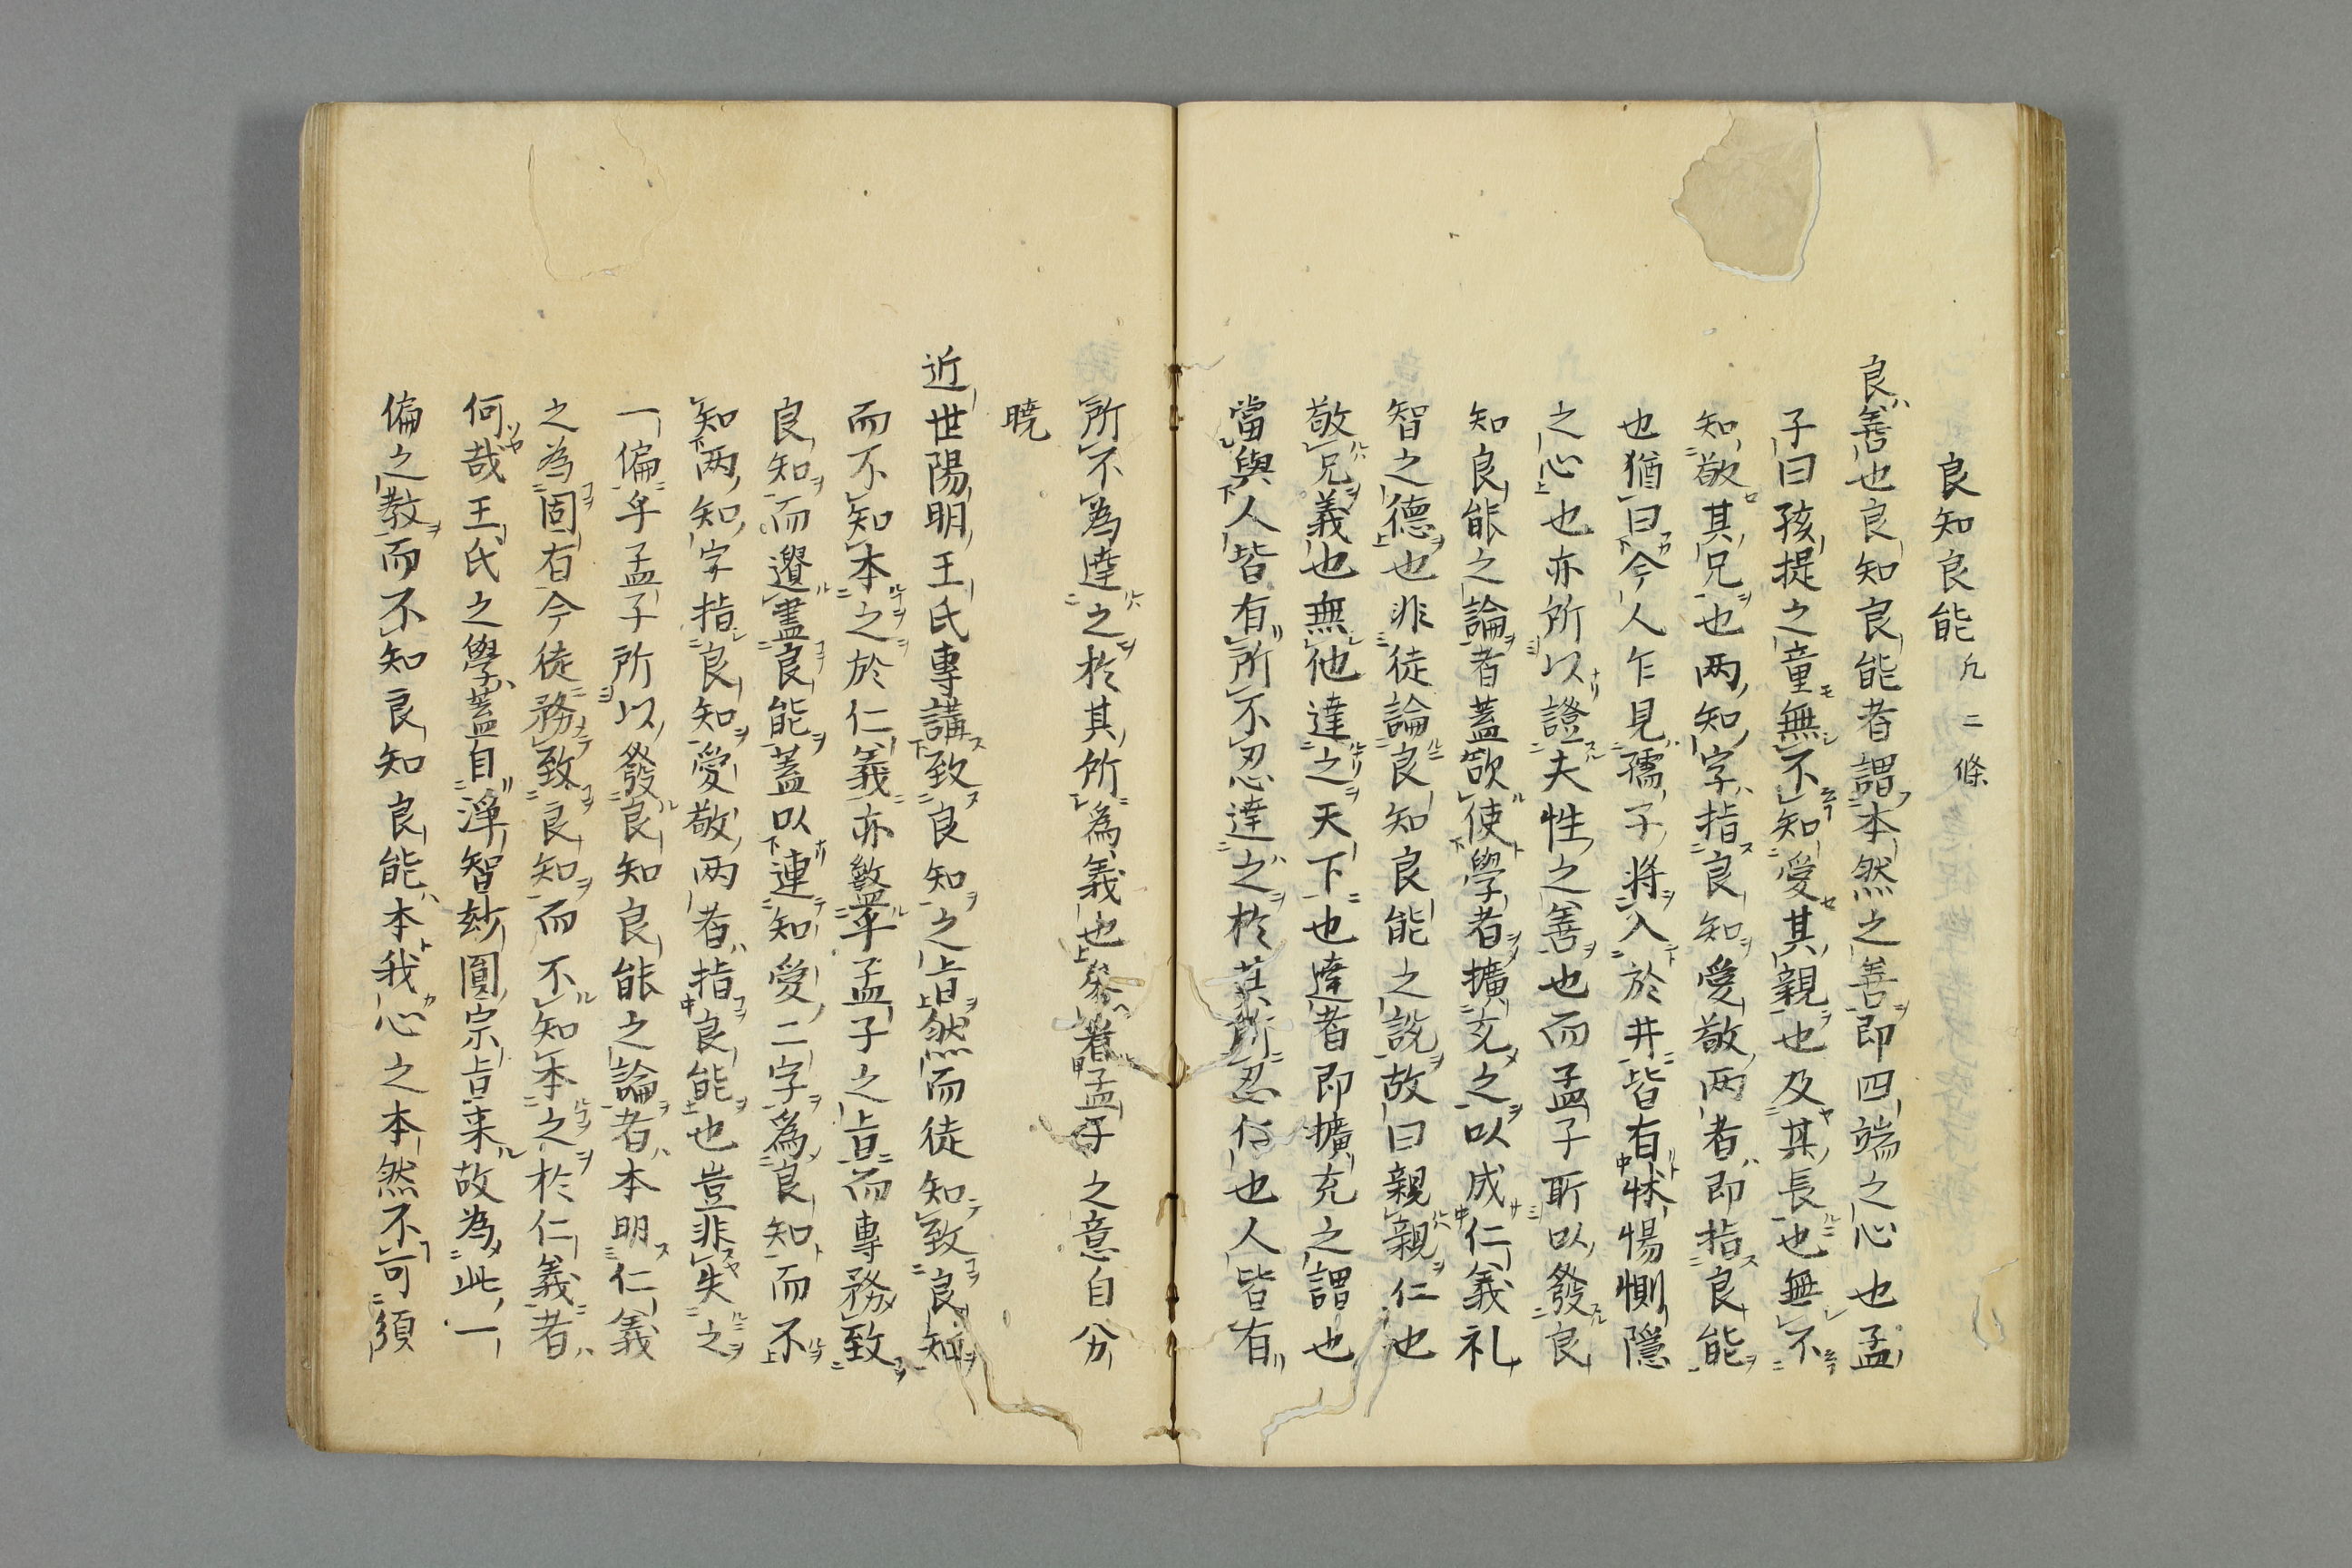 良知良能 凡二條
良善也良知良能者謂本然之善即四端之心也孟
子曰孩提之童無不知愛其親也及其長也無不
知敬其兄也两知字指良知愛敬两者即指良能
也猶曰今人乍見孺子将入於井皆有怵惕惻隱
之心也亦所以證夫性之善也而孟子所以發良
知良能之論者蓋欲使學者擴充之以成仁義礼
智之德也非徒論良知良能之説故曰親親仁也
敬兄義也無他達之天下也達者即擴充之謂也
當與人皆有所不忍達之於其所忍仁也人皆有
所不為達之於其所為義也參看孟子之意自分
暁
近世陽明王氏專講致良知之旨然而徒知致良知
而不知本之於仁義亦盭乎孟子之旨而專務致
良知而遺盡良能蓋以連知愛二字為良知而不
知两知字指良知愛敬两者指良能也豈非失之
一偏乎孟子所以發良知良能之論者本明仁義
之為固有今徒務致良知而不知本之於仁義者
何哉王氏之學蓋自淨智玅圓宗旨来故為此一
偏之教而不知良知良能本我心之本然不可須